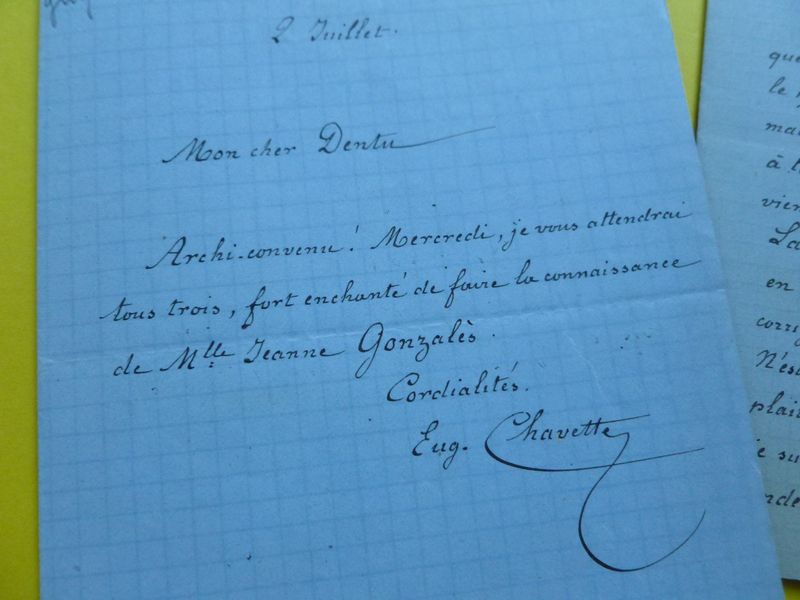 2 Juillet.
Mon cher Dentu
Archi-convenu! Mercredi, je vous attendrai
tous trois, fort enchanté de faire la connaissance
de Mlle Jeanne Gonzalès.
Cordialités.
Eug. Chavette
que
le
à
La
en
N'es
plai